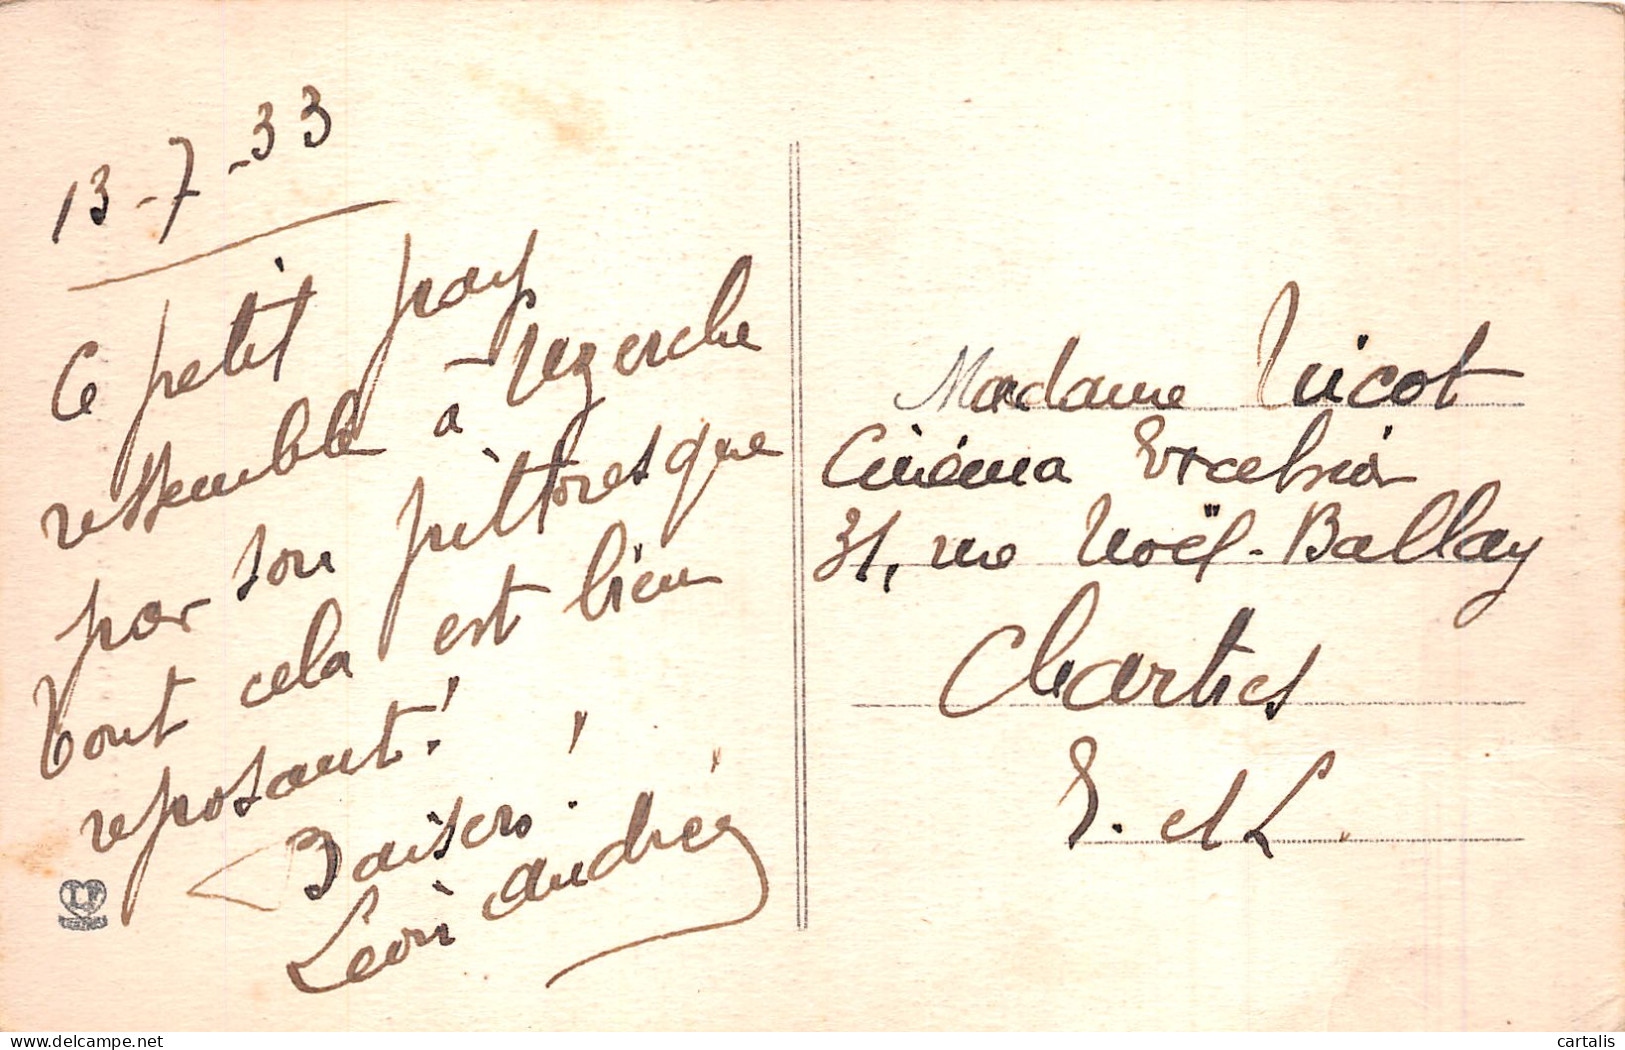 13-7-33
Ce petit pays
ressemble à Uzerche
par son pittoresque
tout cela est bien
reposant!
Baisers!
Léon Andrée
Madame Nicot
Cinéma Excelsior
31, rue Noël-Ballay
Chartres
E. et L.
cartalis
delcampe.net